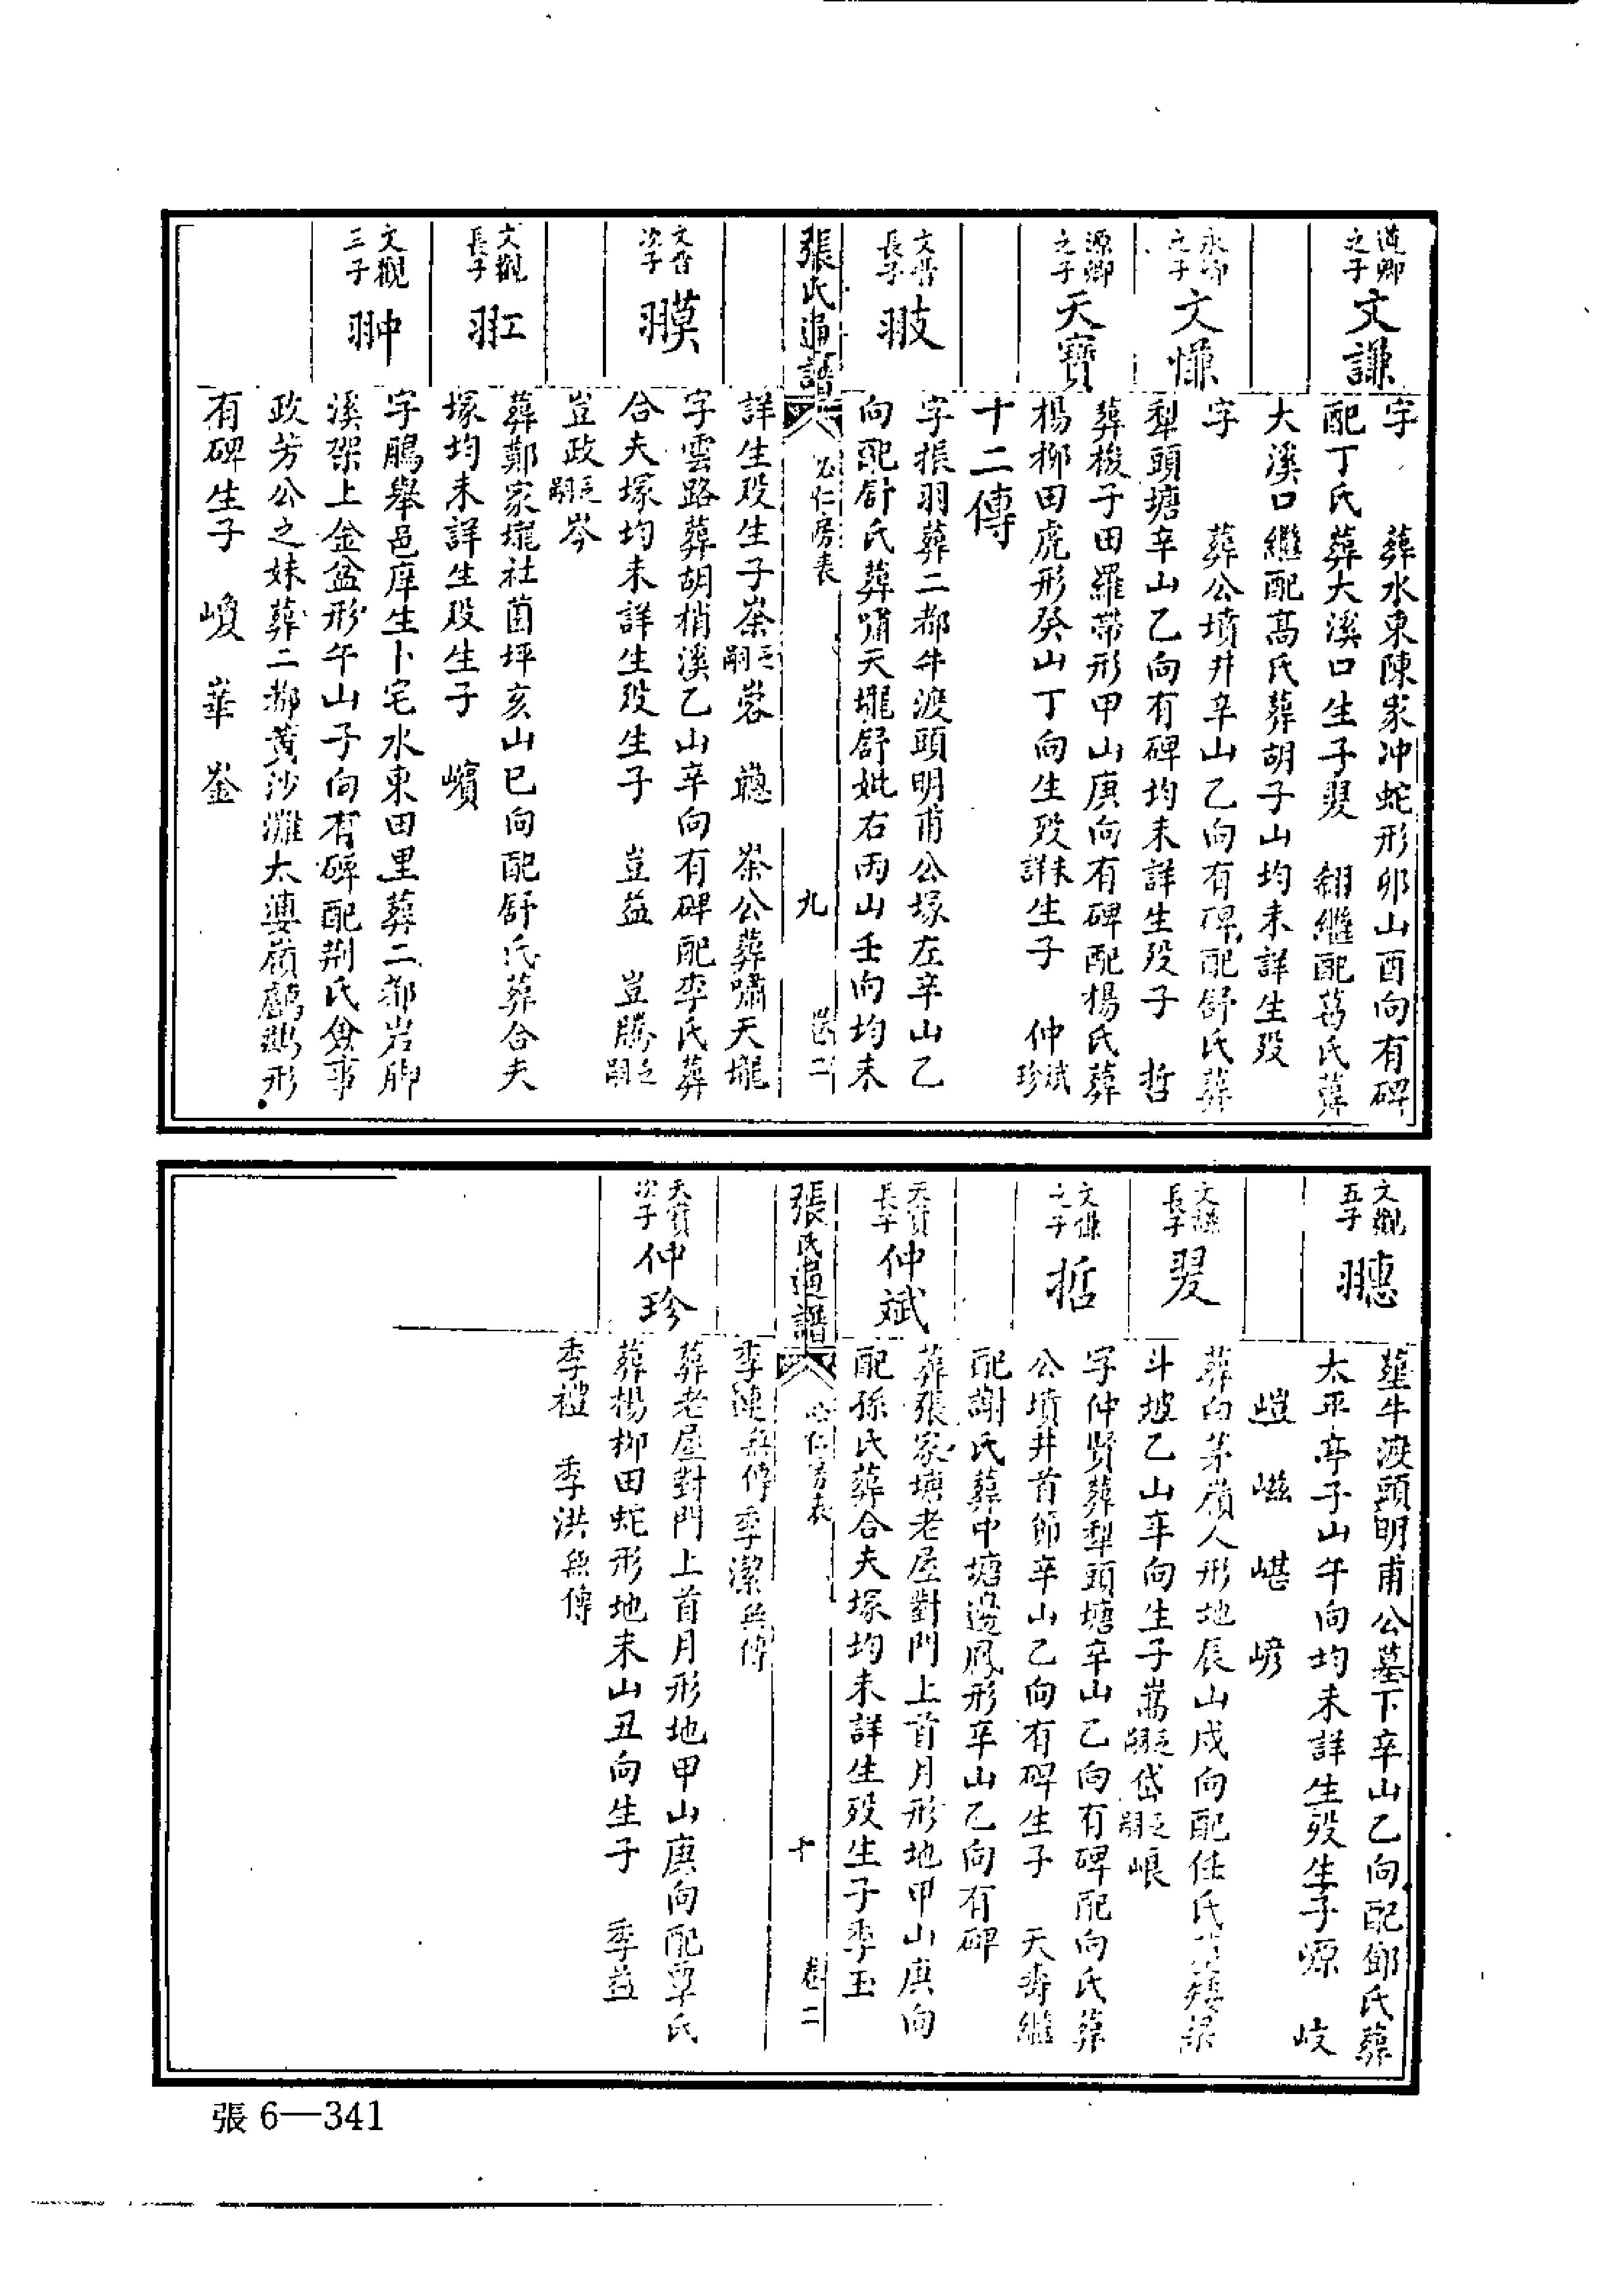 道卿之子
文謙
字　葬水東陳家冲蛇形卯山酉向有碑
配丁氏葬大溪口生子翜　翎繼配葛氏葬
大溪口繼配高氏葬胡子山均未詳生殁
永卿之子
文慊
字　葬公墳井辛山乙向有碑配舒氏葬
犁頭塘辛山乙向有碑均未詳生殁子　哲
源卿之子
天寶
葬梭子田羅帶形甲山庚向有碑配楊氏葬
楊柳田虎形癸山丁向生殁未詳生子　仲斌　仲珍
十二傳
長子
字振羽葬二都牛渡頭明甫公塚左辛山乙
向配舒氏葬嘯天壠舒妣右丙山壬向均未
張氏通譜
必仁房表
九
卷二
詳生殁生子　　公葬嘯天壠
次子
字雲路葬胡梢溪乙山辛向有碑配李氏葬
合夫塚均未詳生殁生子　豈益　豈騰乏嗣
豈政乏嗣岑
文觀長子
葬鄭家壠社茵坪亥山巳向配舒氏葬合夫
塚均未詳生殁生子　嶬
文觀三子
翀
字鵬舉邑庠生卜宅水東田里葬二都岩脚
溪架上金盆形午山子向有碑配荆氏僉事
政芳公之妹葬二都黄沙灘太婆嶺鷓鴣形
有碑生子　峻　崋　崟
文觀五子
葬牛渡頭明甫公墓下辛山乙向配鄧氏葬
太平亭子山午向均未詳生殁生子　岐
嵦　嵫　嵁
文謙長子
翜
葬白茅嶺人形地辰山戌向配任氏
斗坡乙山辛向生子嵩乏嗣岱乏嗣崀
文慊之子
哲
字仲賢葬犁頭塘辛山乙向有碑配向氏葬
公墳井首節辛山乙向有碑生子　天壽繼
配謝氏葬中塘邊鳳形辛山乙向有碑
天寶長子
仲斌
葬張家塘老屋對門上首月形地甲山庚向
配孫氏葬合夫塚均未詳生殁生子季玉
張氏通譜
必仁房表
十
卷二
季連無傳季潔無傳
天寶次子
仲珍
葬老屋對門上首月形地甲山庚向配覃氏
葬楊柳田蛇形地未山丑向生子　季益
季禮　季洪無傳
張 6—341